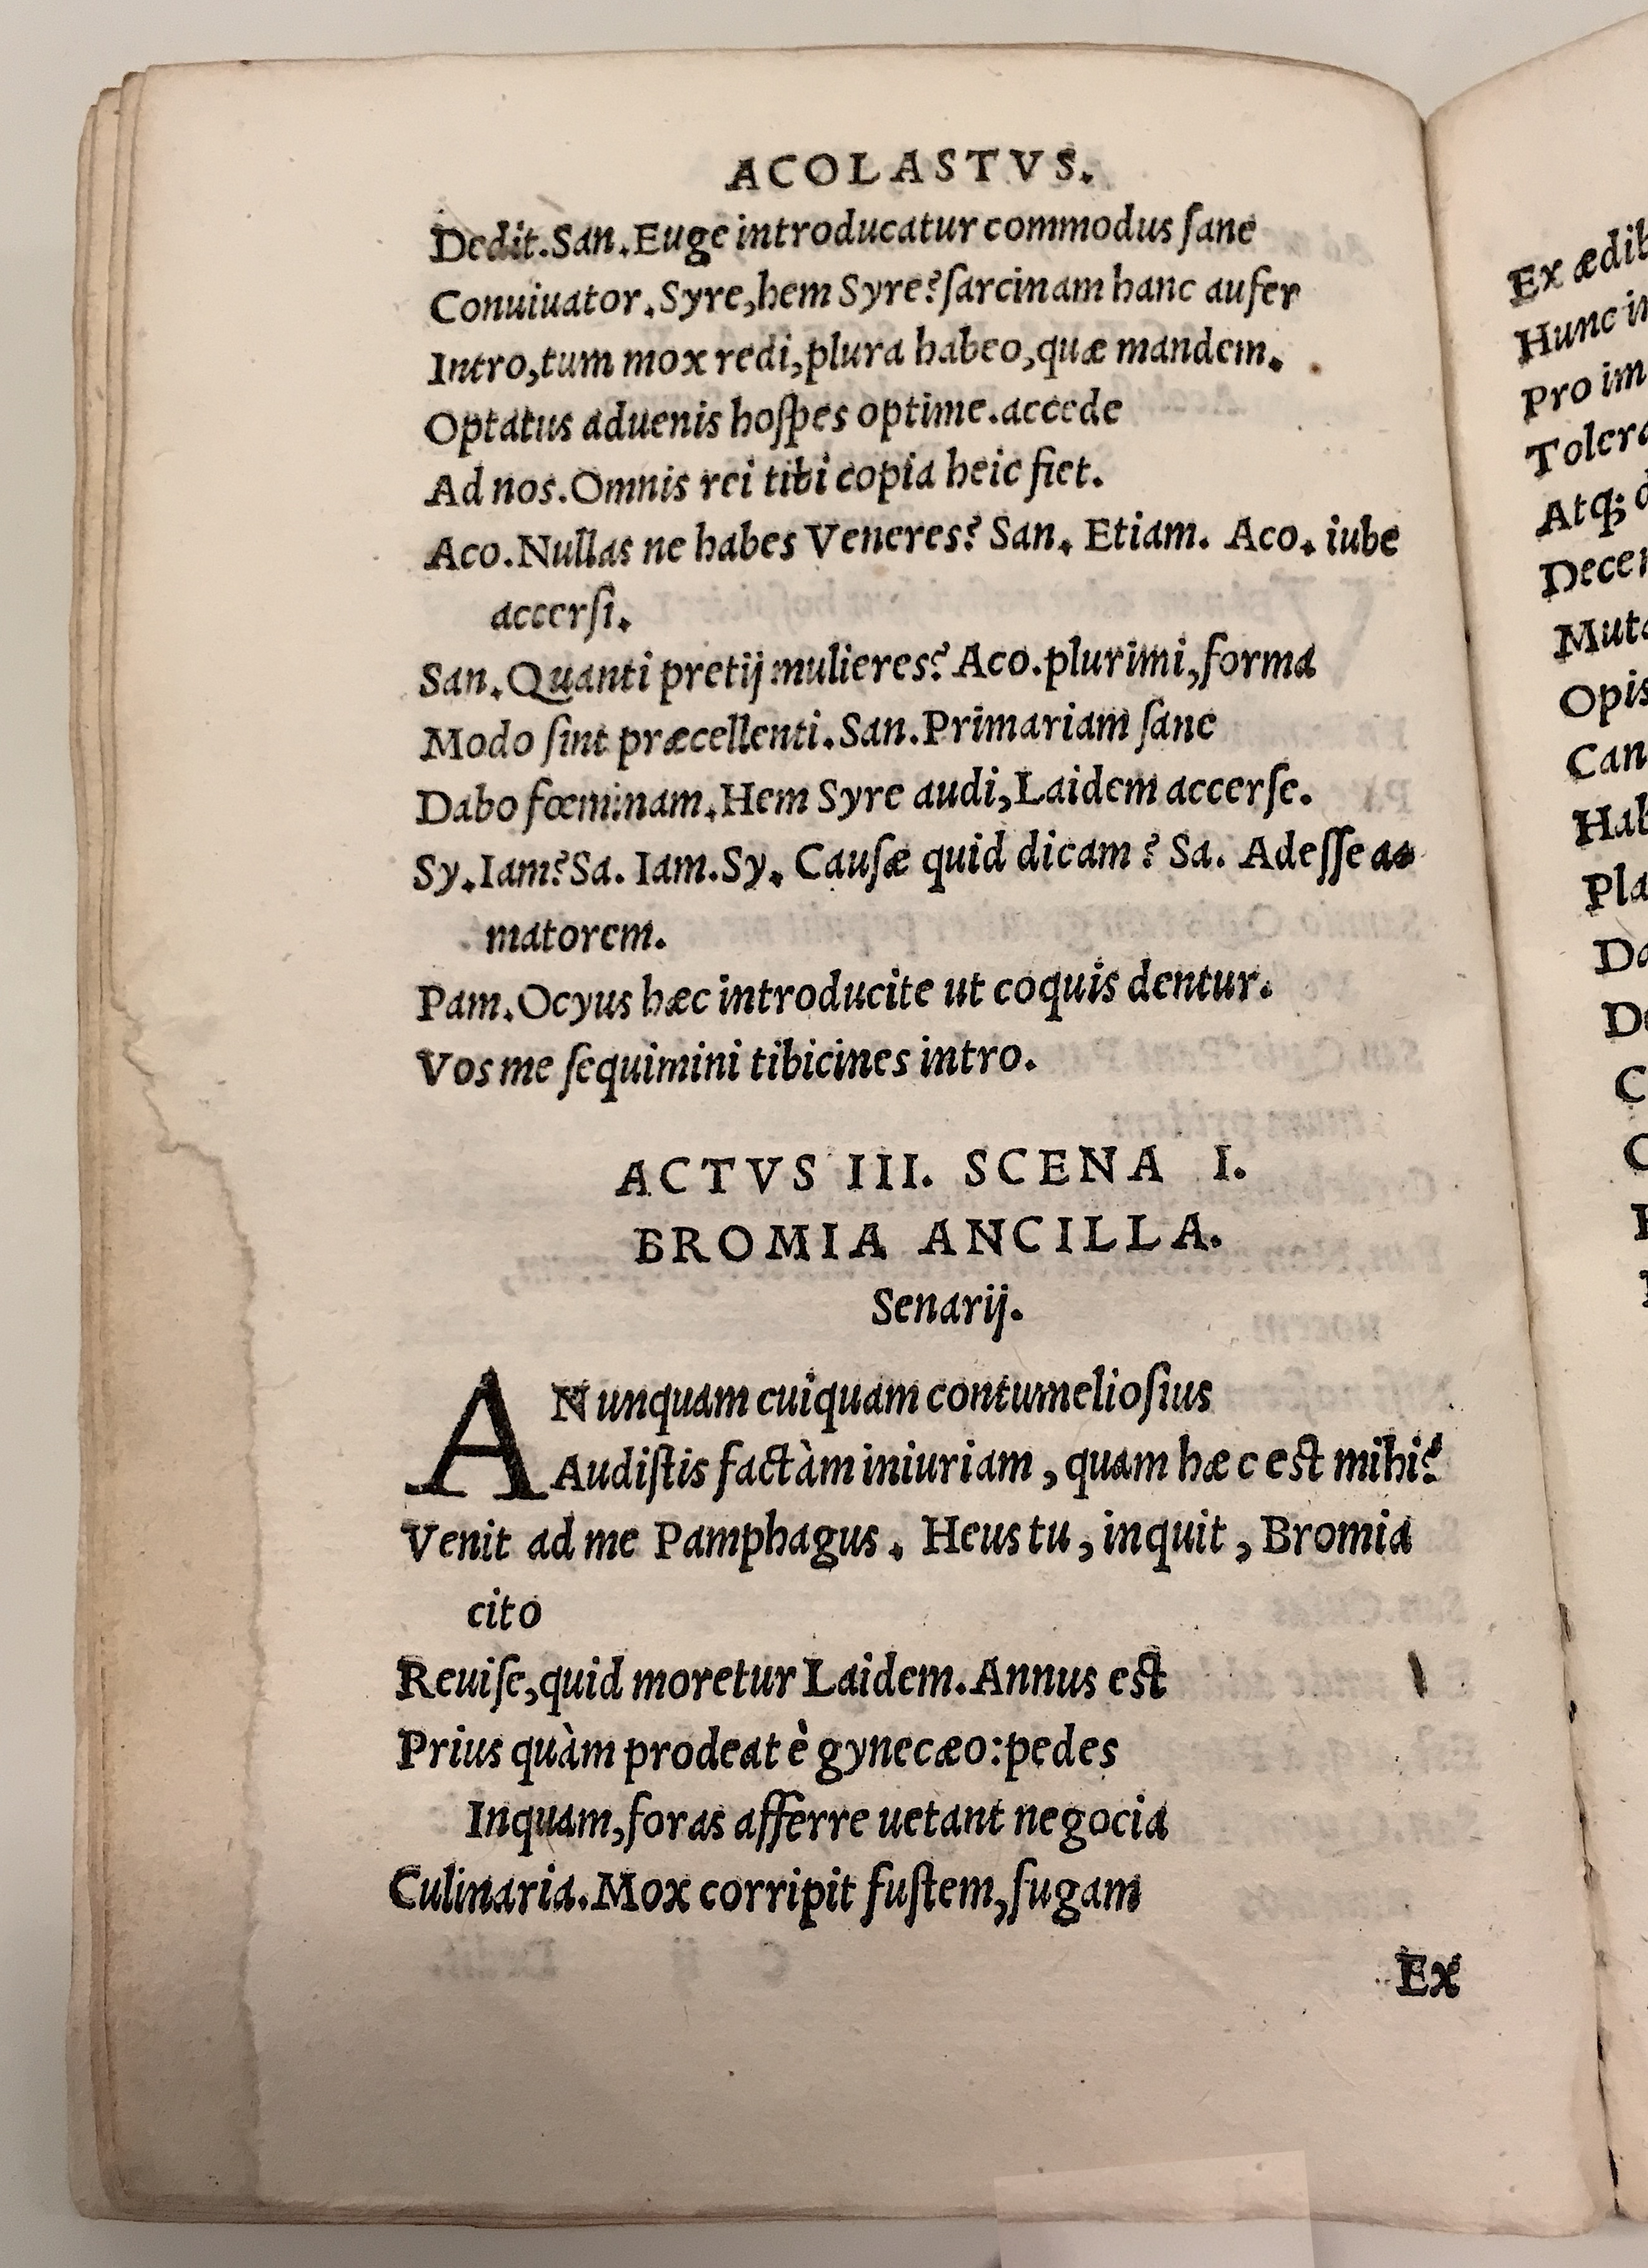 ACOLASTVS.
Dedit.San.Euge introducatur commodus ſane
Conuiuator.Syre,hem Syre?ſarcinam hanc aufer
Intro,tum mox redi,plura habeo,quæ mandem.
Optatus aduenis hoſpes optime.accede
Ad nos.Omnis rei tibi copia heic fiet.
Aco.Nullas ne habes Veneres? San. Etiam. Aco. iube
accerſi.
San.Quanti pretij mulieres? Aco.plurimi,forma
Modo ſint præcellenti.San.Primariam ſane
Dabo fœminam.Hem Syre audi,Laidem accerſe.
Sy.Iam?Sa. Iam.Sy. Cauſæ quid dicam ? Sa. Adeſſe a-
matorem.
Pam.Ocyus hæc introducite ut coquis dentur.
Vos me ſequimini tibicines intro.
ACTVS III. SCENA I.
BROMIA ANCILLA.
Senarij.
AN unquam cuiquam contumelioſius
Audiſtis factàm iniuriam , quam hæc est mihi?
Venit ad me Pamphagus. Heus tu, inquit, Bromia
cito
Reuiſe,quid moretur Laidem.Annus est
Prius quàm prodeat è gynecæo:pedes
Inquam,foras afferre uetant negocia
Culinaria.Mox corripit fuſtem,fugam
Ex
Ex
Hunc
Pro
Atq;